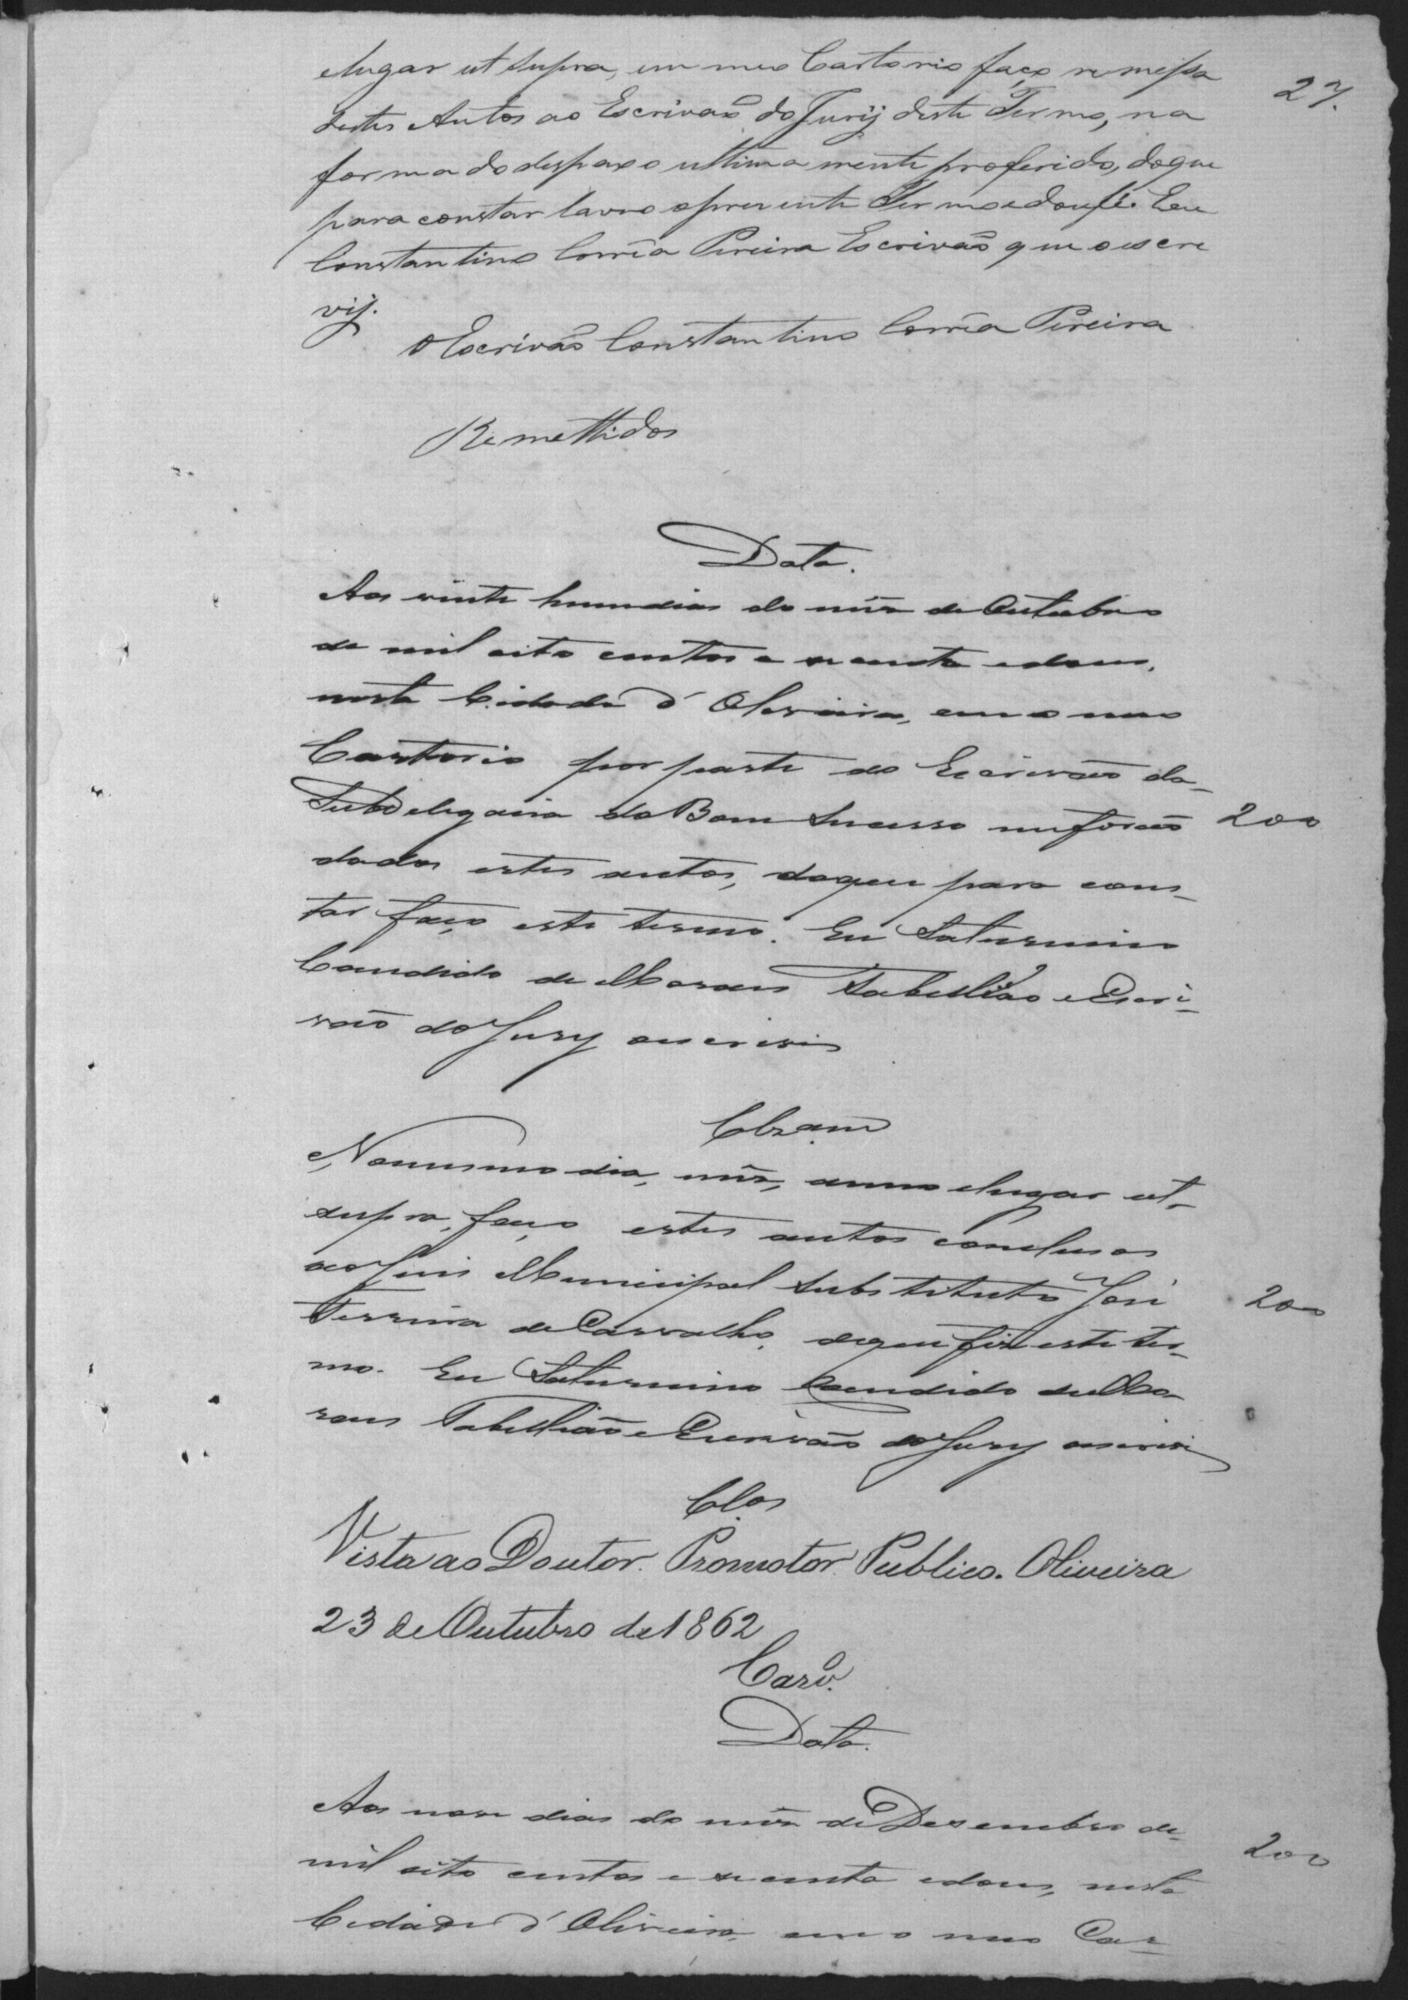 elugar ut supra, em meu Cartorio faço remessa
destes Autos ao Escrivaõ do Jurÿ deste Termo, na
27.
forma do despaxo ultima mente proferido, do que
para constar lavro o prezente Termo e dou fé. Eu
Constantino Corrêa Pereira Escrivaõ que o escre
vÿ.
O Escrivaõ Constantino Corrêa Pereira
Remettidos
Data.
Aos vinte hum dias do mês de Outubro
de mil oito centos e secenta e dous,
nesta Cidade d'Oliveira, em o meo
Cartorio por parte do Escrivão da
Subdelegacia do Bom Sucesso me forão
200
dados estes autos, doque para cons-
tar faço este termo. Eu Saturnino
Candido de Moraes Tabellião e Escri-
vão do Jury oescrivi
Clzam
No mesmo dia, mês, anno elugar ut-
supra, faço estes autos conclusos
ao Juis Municipal Substituto José
200
Ferreira de Carvalho, doque fiz este ter-
mo. Eu Saturnino Candido de Mo
raes Tabellião e Escrivão do Jury oescrivi
Clos
Vista ao Doutor Promotor Publico. Oliveira
23 de Outubro de 1862
Carvo.
Data.
Aos nove dias do mês de Dezembro de
200
mil oito centos e secenta e dous, nesta
Cidade d'Oliveira, em o meo Car-